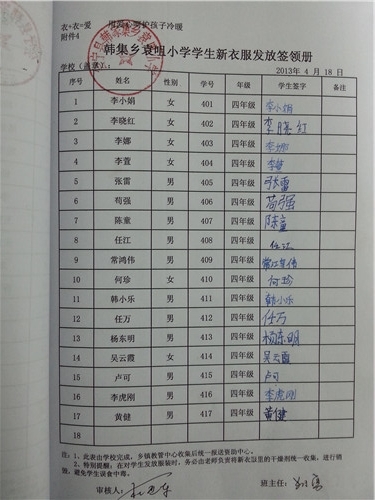 衣+衣=爱 用爱心呵护孩子冷暖
附件4
韩集乡袁咀小学学生新衣服发放签领册
学校（盖章）： 2013年 4 月 18 日
序号 姓名 性别 学号 年级 学生签字 备注
1 李小娟 女 401 四年级 李小娟
2 李晓红 女 402 四年级 李晓红
3 李娜 女 403 四年级 李娜
4 李萱 女 404 四年级 李萱
5 张雷 男 405 四年级 张雷
6 苟强 男 406 四年级 苟强
7 陈童 男 407 四年级 陈童
8 任江 男 408 四年级 任江
9 常鸿伟 男 409 四年级 常江伟
10 何珍 女 410 四年级 何珍
11 韩小乐 男 411 四年级 韩小乐
12 任万 男 412 四年级 任万
13 杨东明 男 413 四年级 杨东明
14 吴云霞 女 414 四年级 吴云霞
15 卢可 男 415 四年级 卢可
16 李虎刚 男 416 四年级 李虎刚
17 黄健 男 417 四年级 黄健
18
注：1、此表由学校完成，乡镇教管中心收集后统一报送资助中心。
2、特别提醒：在对学生发放服装时，务必由老师负责将新衣以里的干燥剂统一收集、进行销
毁，避免学生误食中毒。
审核人： 班主任：